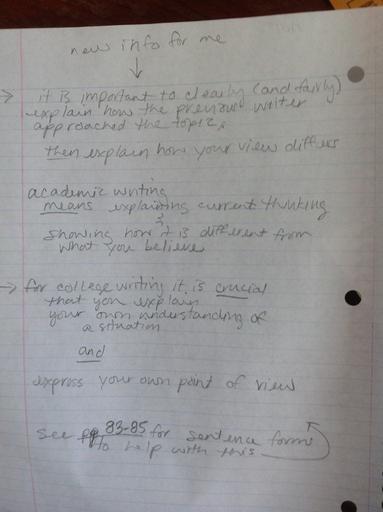 new info for me
↓
→ it is important to clearly (and fairly)
explain how the previous writer
approached the topic,
then explain how your view differs
academic writing
means explaining current thinking
&
showing how it is different from
what you believe
→ for college writing it is crucial
that you explain
your own understanding of
a situation
and
express your own point of view
see pg 83-85 for sentence forms
to help with this